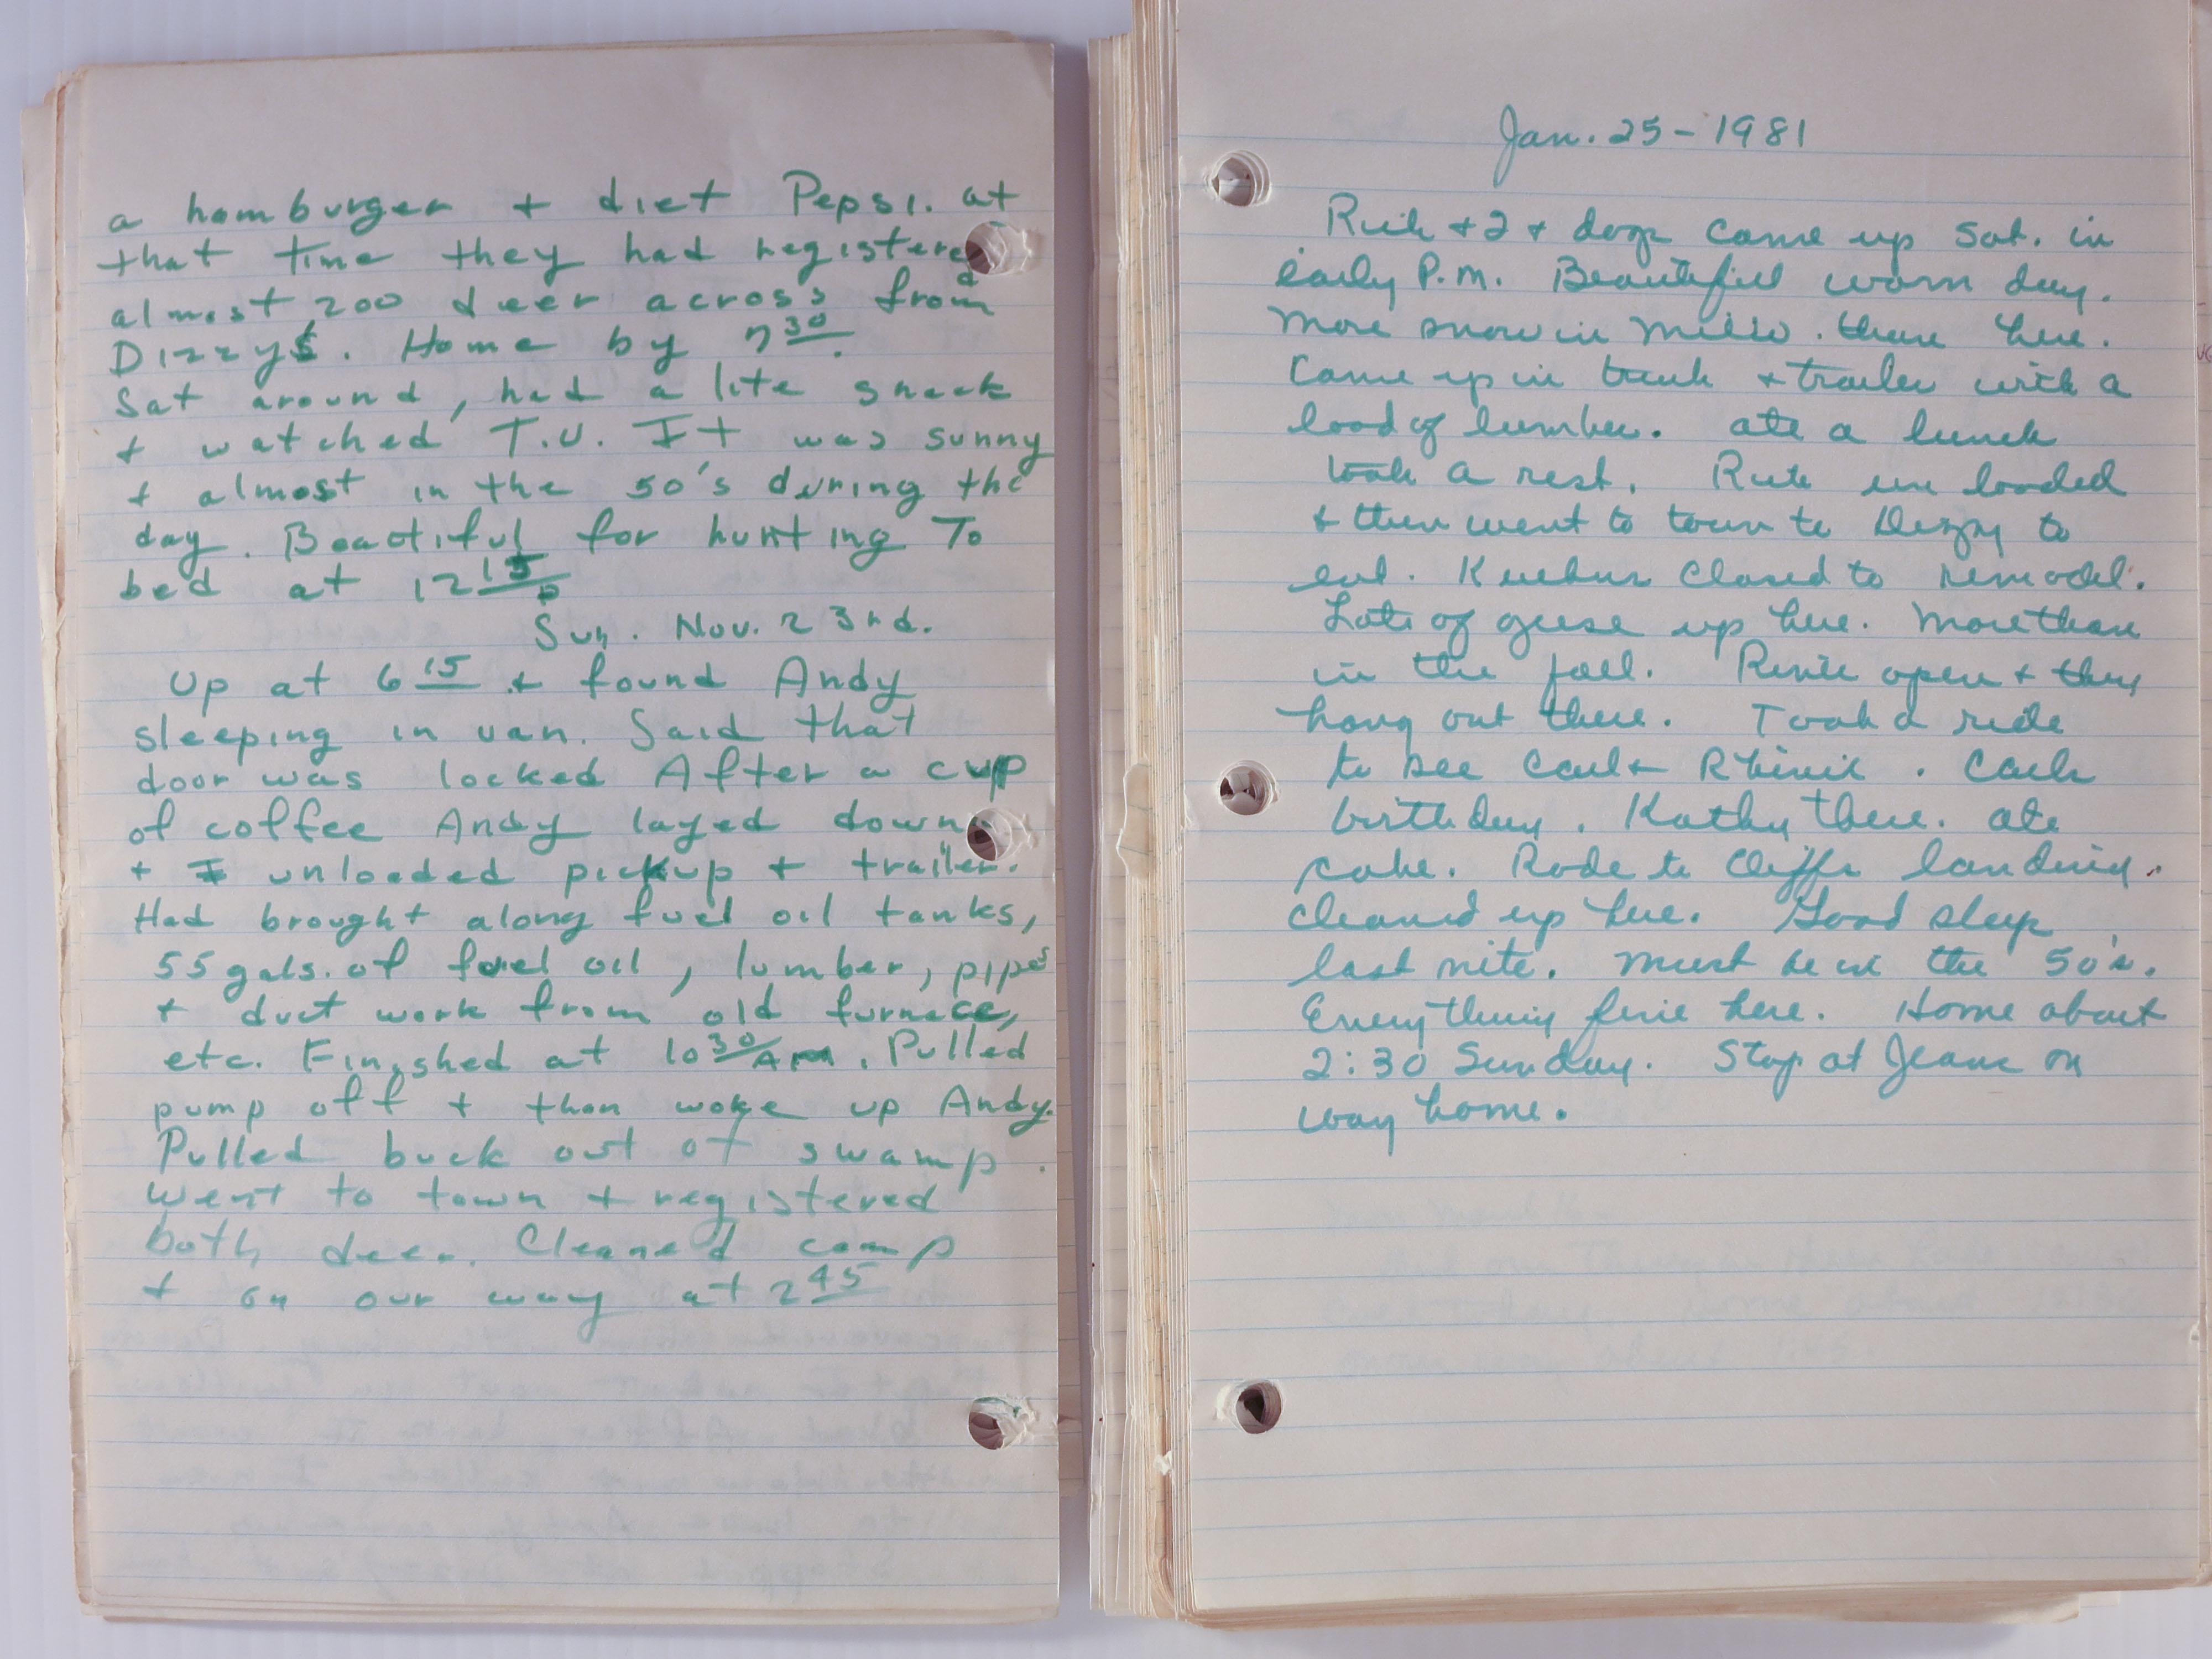 a hamburger + diet Pepsi. at
that time they had registered
almost 200 deer across from
Dizzys. Home by 7 30.
Sat around, had a lite snack
+ watched T.V. It was sunny
+ almost in the 50's during the
day. Beautiful for hunting To
bed at 12 15
Sun. Nov. 23rd.
Up at 6 15 + found Andy
sleeping in van. Said that
door was locked After a cup
of coffee Andy layed down
+ I unloaded pickup + trailer.
Had brought along fuel oil tanks,
55 gals. of fuel oil, lumber, pipes
+ duct work from old furnace,
etc. Finished at 10 30 AM. Pulled
pump off + then woke up Andy.
Pulled buck out of swamp.
Went to town + registered
both deer. Cleaned camp
+ on our way at 2 45
Jan. 25-1981
+ 2 + dogs came up Sat. in
early P.M. Beautiful warm day.
More snow in Milw. than here.
Came up in truck + trailer with a
load of lumber. ate a lunch
took a rest. un loaded
+ then went to town to Dizzy to
eat. closed to remodel.
Lots of geese up here. More than
in the fall. open + they
hang out there. Took a ride
to see Carl + . Carls
birthday. Kathy there. ate
cake. Rode to Cliffs landing.
Cleaned up here. Good sleep
last nite. Must be in the 50's.
Everything fine here. Home about
2:30 Sunday. Stop at Jeans on
way home.